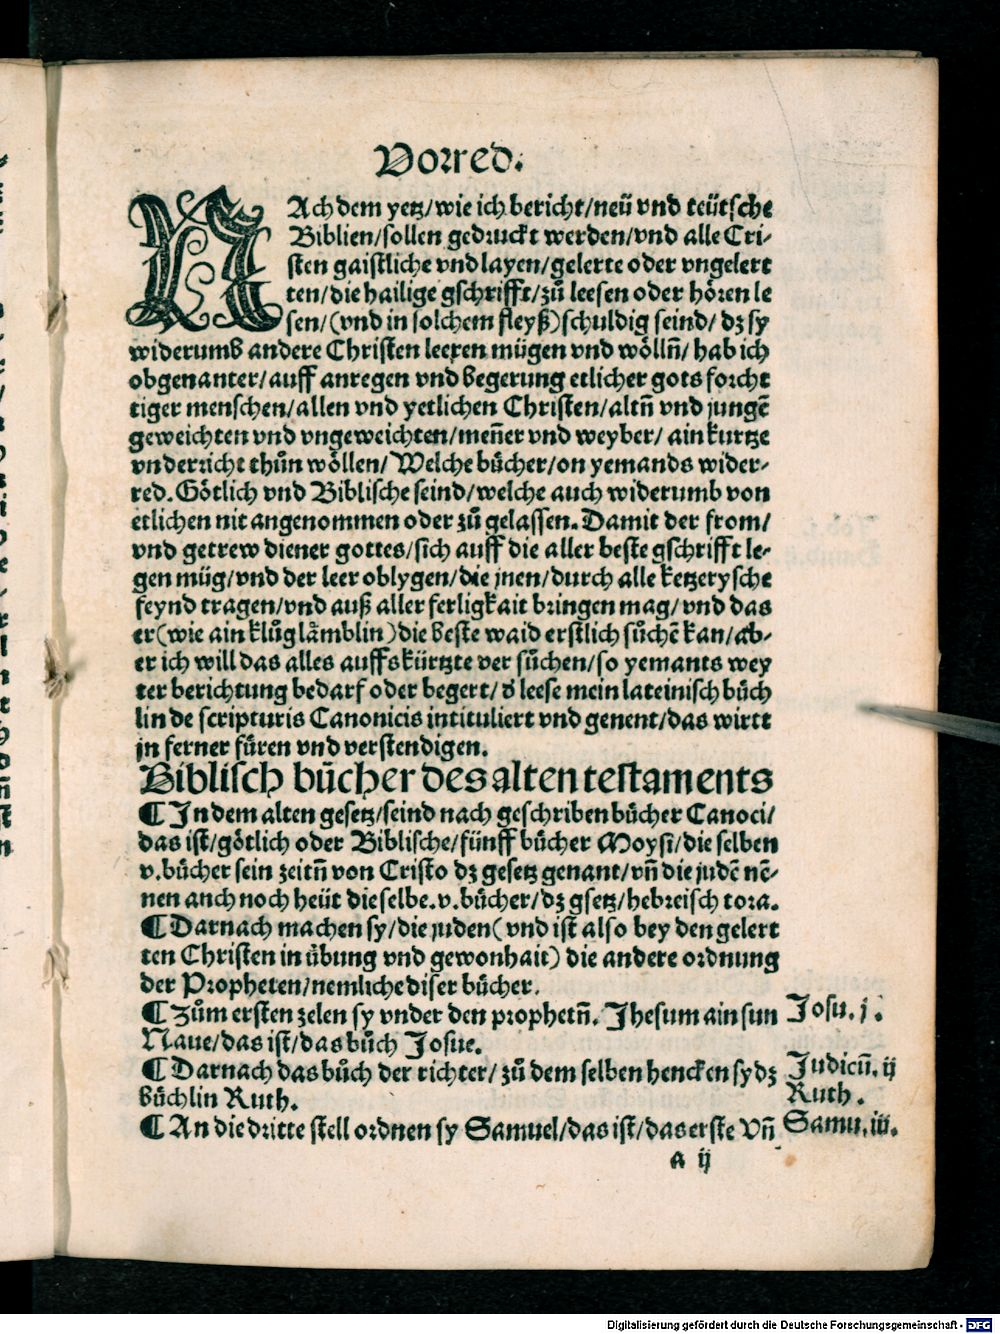 Vorred.
NAch dem yetz/wie ich bericht/neü vnd teütsche
Biblien/sollen gedruckt werden/vnd alle Cri-
sten gaistliche vnd layen/gelerte oder vngelert
ten/die hailige gschrifft/zů leesen oder hören le
sen/(vnd in solchem fleyß)schuldig seind/ dz sy
widerumb andere Christen leeren mügen vnd wölln̄/ hab ich
obgenanter/auff anregen vnd begerung etlicher gots forcht
tiger menschen/allen vnd yetlichen Christen/altn̄ vnd jungē
geweichten vnd vngeweichten/men̄er vnd weyber/ ain kurtze
vnderricht thůn wöllen/ Welche bücher/on yemands wider-
red. Götlich vnd Biblische seind/welche auch widerumb von
etlichen nit angenommen oder zů gelassen. Damit der from/
vnd getrew diener gottes/sich auff die aller beste gschrifft le-
gen müg/vnd der leer oblygen/die jnen/durch alle ketzerysche
feynd tragen/vnd auß aller ferligkait bringen mag/vnd das
er(wie ain klůg lämblin)die beste waid erstlich sůchē kan/ab-
er ich will das alles auffs kürtzte ver sůchen/so yemants wey
ter berichtung bedarf oder begert/d̄ leese mein lateinisch bůch
lin de scripturis Canonicis intituliert vnd genent/das wirtt
jn ferner füren vnd verstendigen.
Biblisch bücher des alten testaments
¶ In dem alten gesetz/seind nach geschriben bücher Canoci/
das ist/götlich oder Biblische/fünff bücher Moysi/die selben
v.bücher sein zeitn̄ von Cristo dz gesetz genant/vn̄ die judē nē-
nen auch noch heüt dieselbe.v.bücher/dz gsetz/hebreisch tora.
¶ Darnach machen sy/die juden(vnd ist also bey den gelert
ten Christen in übung vnd gewonhait) die andere ordnung
der Propheten/nemliche diser bücher.
¶ Zům ersten zelen sy vnder den prophetn̄. Jhesum ain sun Josu. j.
Naue/das ist/das bůch Josue.
¶ Darnach das bůch der richter/ zů dem selben hencken sy dz Judicū. ij
büchlin Ruth. Ruth.
¶ An die dritte stell ordnen sy Samuel/das ist/das erste vn̄ Samu. iii.
a ij
Digitalisierung gefördert durch die Deutsche Forschungsgemeinschaft - DFG